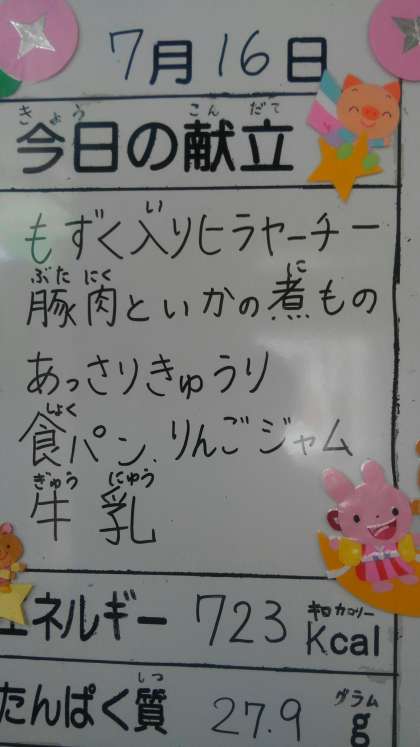 7月16日
きょう こん だて
今日の献立
い
もずく入りヒラヤーチー
ぶた にく に
豚肉といかの煮もの
あっさりきゅうり
しょく
食パン、りんごジャム
ぎゅう にゅう
牛乳
エネルギー 723 キロカロリー Kcal
しつ グラム
たんぱく質 27.9 g